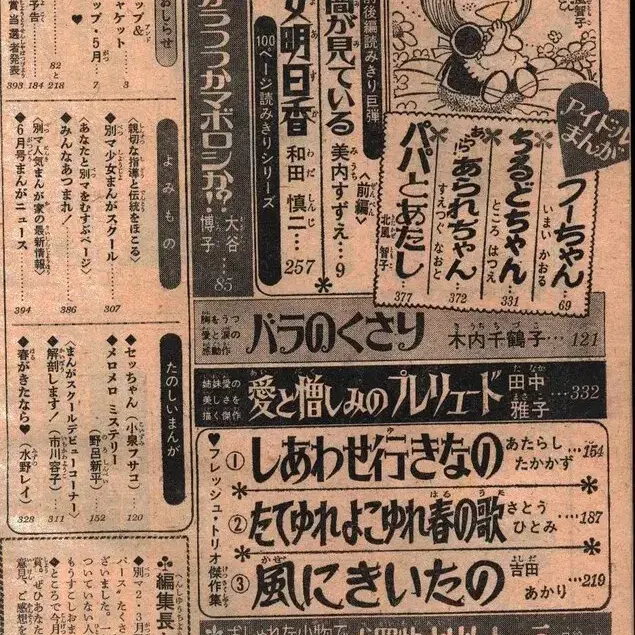 アイドルまんが
フーちゃん いまいかおる 69
ちるどちゃん ところはつえ 331
あらあられちゃん すえつぐなおと 372
パパとあたし… 北風智子 377
前後編読みきり巨弾
が見ている〈前編〉 美内すずえ…9
100ページ読みきりシリーズ
女明日香 和田慎二…257
うつつかマボロシか!? 大谷博子…85
胸をうつ愛と涙の感動作
バラのくさり 木内千鶴子…121
姉妹愛の美しさを描く傑作
愛と憎しみのプレリュード 田中雅子…332
♥フレッシュ・トリオ傑作集
①しあわせ行きなの あたらしたかかず…154
②たてゆれよこゆれ春の歌 さとうひとみ…187
③風にきいたの 吉田あかり…219
おしらせ
予告
賞当選者発表
82と218
184
393
ップ&
ャケット 3
ップ・5月 7
よみもの
〈親切な指導と伝統をほこる〉
◆別マ少女まんがスクール 307
〈あなたと別マをむすぶページ〉
◆みんなあつまれ! 386
〈別マ人気まんが家の最新情報〉
◆6月号まんがニュース 394
たのしいまんが
◆セッちゃん(小泉フサコ) 120
◆メロメロ ミステリー(野呂新平) 152
〈まんがスクールデビューコーナー〉
◆解剖します!(市川容子) 311
◆春がきたなら♥(水野レイ) 328
♣編集長